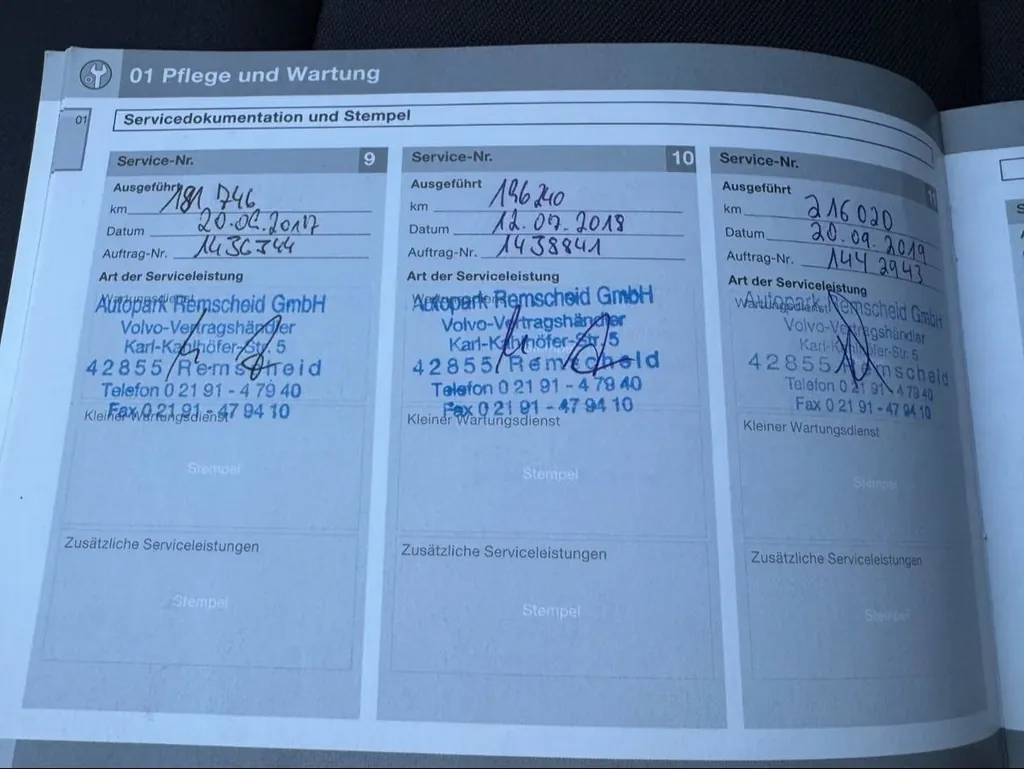 01 Pflege und Wartung
01
Servicedokumentation und Stempel
Service-Nr. 9
Ausgeführt
km 181 746
Datum 20.06.2017
Auftrag-Nr. 1436344
Art der Serviceleistung
Wartungsdienst
Autopark Remscheid GmbH
Volvo-Vertragshändler
Karl-Kahlhöfer-Str. 5
42855 Remscheid
Telefon 0 21 91 - 4 79 40
Fax 0 21 91 - 47 94 10
Kleiner Wartungsdienst
Stempel
Zusätzliche Serviceleistungen
Stempel
Service-Nr. 10
Ausgeführt
km 196240
Datum 12.07.2018
Auftrag-Nr. 1438841
Art der Serviceleistung
Wartungsdienst
Autopark Remscheid GmbH
Volvo-Vertragshändler
Karl-Kahlhöfer-Str. 5
42855 Remscheid
Telefon 0 21 91 - 4 79 40
Fax 0 21 91 - 47 94 10
Kleiner Wartungsdienst
Stempel
Zusätzliche Serviceleistungen
Stempel
Service-Nr. 11
Ausgeführt
km 216020
Datum 20.09.2019
Auftrag-Nr. 144 2943
Art der Serviceleistung
Wartungsdienst
Autopark Remscheid GmbH
Volvo-Vertragshändler
Karl-Kahlhöfer-Str. 5
42855 Remscheid
Telefon 0 21 91 - 4 79 40
Fax 0 21 91 - 47 94 10
Kleiner Wartungsdienst
Stempel
Zusätzliche Serviceleistungen
Stempel